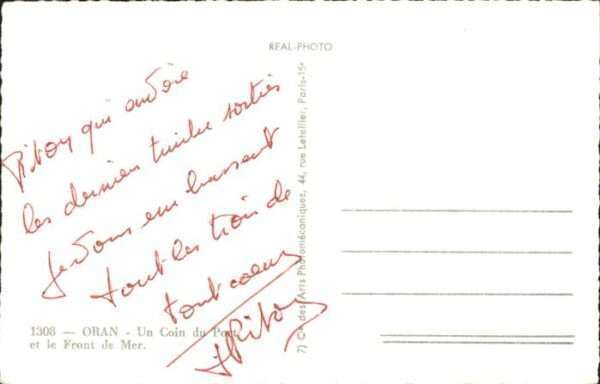 REAL-PHOTO
Ritou qui envoie
les derniers timbres sorties
je vous embrassent
tout les trois de
tout coeur
Ritou
1308 — ORAN - Un Coin du Port
et le Front de Mer.
7) Cie des Arts Photomécaniques, 44, rue Letellier, Paris-15e